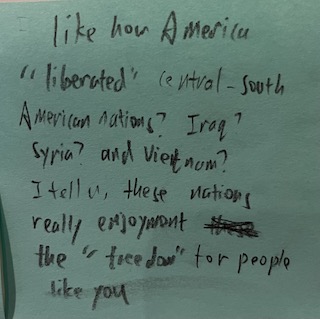 like how America
"liberated" central-south
American nations? Iraq?
Syria? and Vietnam?
I tell u, these nations
really enjoyment
the "freedom" for people
like you